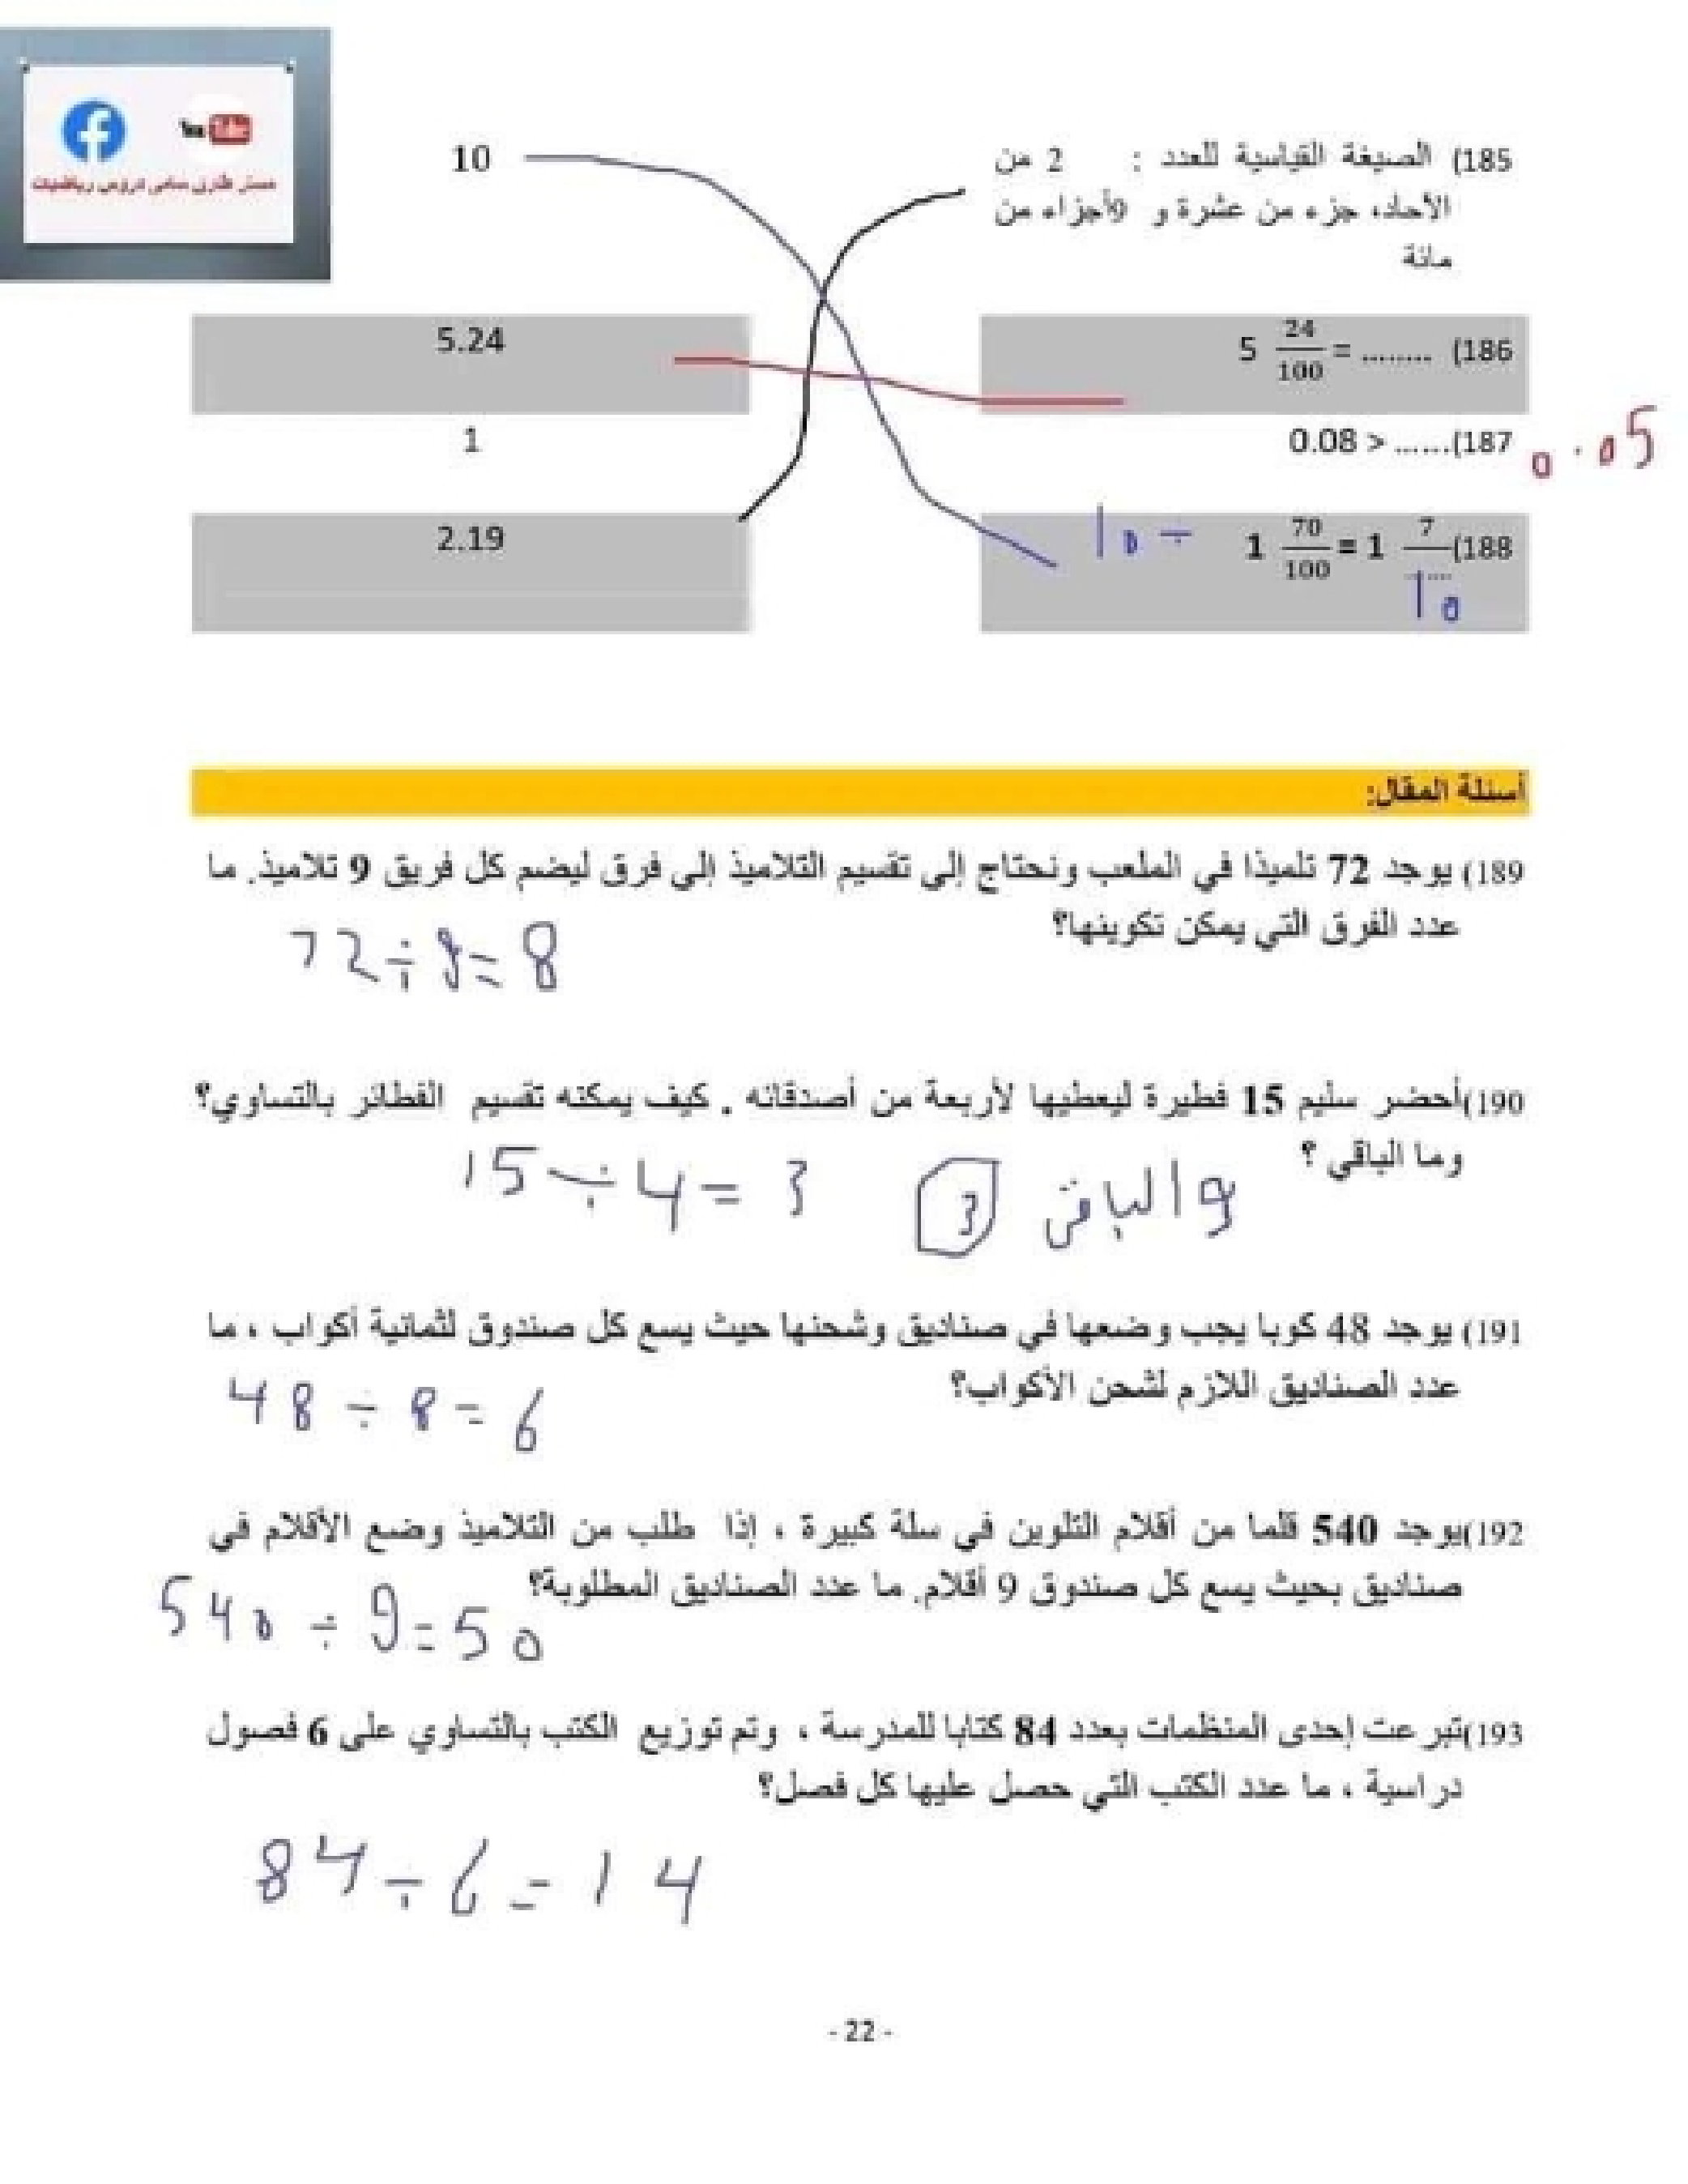 You Tube
مستر طارق سامى دروس رياضيات
185) الصيغة القياسية للعدد : 2 من
الآحاد، جزء من عشرة و 9أجزاء من
مائة
10
186) 5 24/100 = ........
5.24
187)...... < 0.08
0.05
1
188) 1 70/100 = 1 7/....
10
10 ÷
2.19
أسئلة المقال:
189) يوجد 72 تلميذا في الملعب ونحتاج إلى تقسيم التلاميذ إلى فرق ليضم كل فريق 9 تلاميذ. ما
عدد الفرق التي يمكن تكوينها؟
72 ÷ 9 = 8
190)أحضر سليم 15 فطيرة ليعطيها لأربعة من أصدقائه . كيف يمكنه تقسيم الفطائر بالتساوي؟
وما الباقي ؟
15 ÷ 4 = 3
والباقى 3
191) يوجد 48 كوبا يجب وضعها في صناديق وشحنها حيث يسع كل صندوق لثمانية أكواب ، ما
عدد الصناديق اللازم لشحن الأكواب؟
48 ÷ 8 = 6
192)يوجد 540 قلما من أقلام التلوين في سلة كبيرة ، إذا طلب من التلاميذ وضع الأقلام في
صناديق بحيث يسع كل صندوق 9 أقلام. ما عدد الصناديق المطلوبة؟
540 ÷ 9 = 50
193)تبرعت إحدى المنظمات بعدد 84 كتابا للمدرسة ، وتم توزيع الكتب بالتساوي على 6 فصول
دراسية ، ما عدد الكتب التي حصل عليها كل فصل؟
84 ÷ 6 = 14
- 22 -